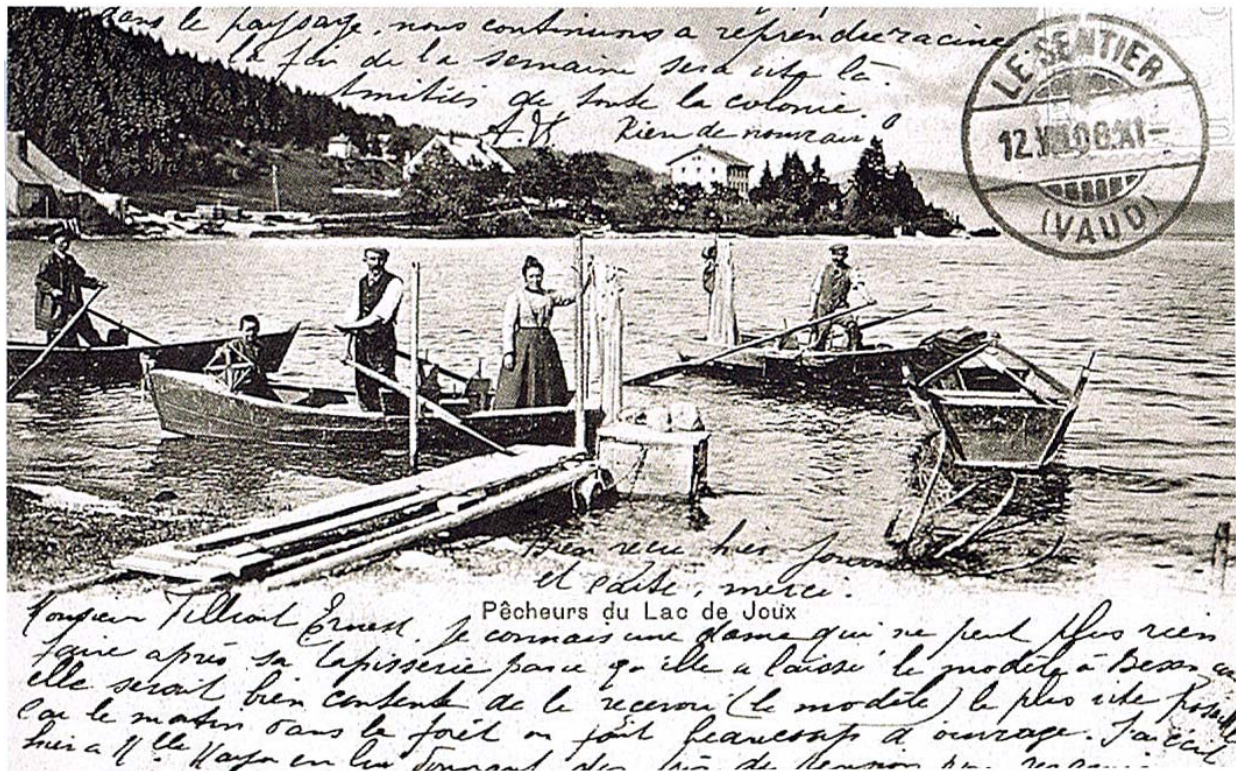 dans le paysage, nous continuons a reprendre racine
la fin de la semaine sera vite là
Amitiés de toute la colonie.
Rien de nouveau
LE SENTIER
(VAUD)
Bien reçu hier
et carte, merci.
Pêcheurs du Lac de Joux
Monsieur Ernest. Je connais une dame qui ne peut plus rien
faire après sa tapisserie parce qu'elle a laissé le modèle à
elle serait bien contente de le recevoir (le modèle) le plus vite
car le matin dans la forêt on fait beaucoup d'ouvrage. J'ai écrit
hier a Mlle en lui donnant des